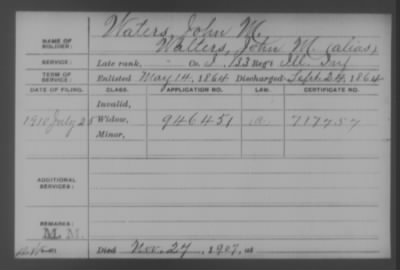 NAME OF SOLDIER: Waters, John M.
Walters, John M. (alias)
SERVICE: Late rank, - Co. I, 133 Reg't Ill. Inf
TERM OF SERVICE: Enlisted May 14, 1864 Discharged Sept. 24, 1864
DATE OF FILING. CLASS. APPLICATION NO. LAW. CERTIFICATE NO.
Invalid,
1910 July 25 Widow, 946451 717757
Minor,
ADDITIONAL SERVICES:
REMARKS:
M. M.
Died Nov. 27, 1907, at